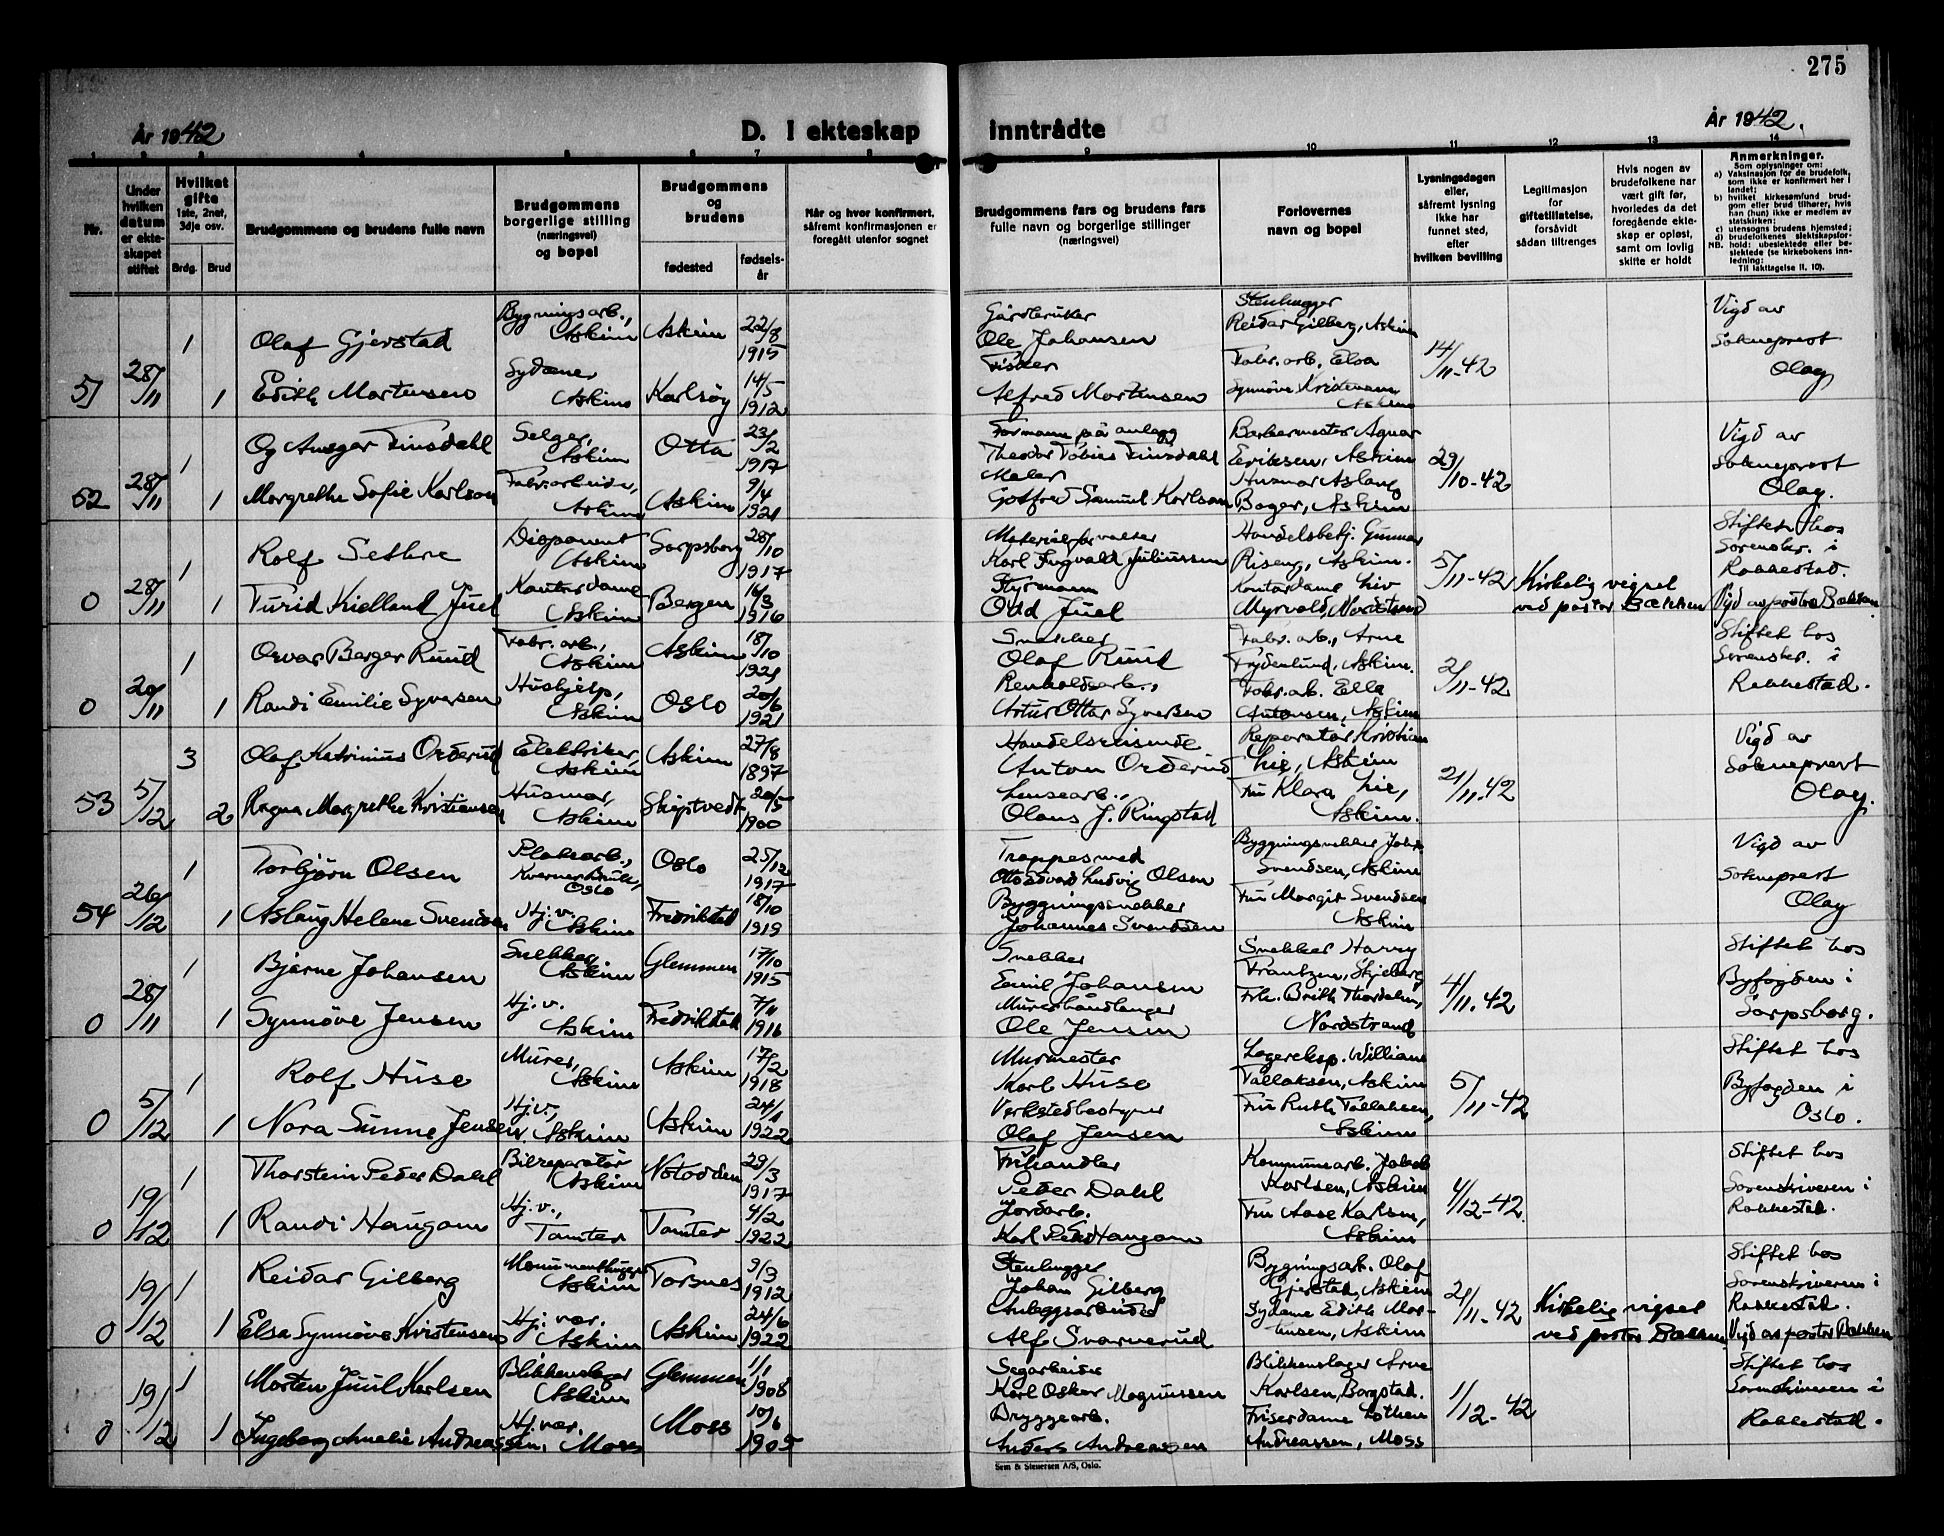 275
År 1942
D. I ekteskap inntrådte
År 1942.
1 2 3 4 5 6 7 8 9 10 11 12 13 14
Nr.
Under hvilken datum er ekteskapet stiftet
Hvilket gifte
1ste, 2net, 3dje osv.
Brdg.
Brud
Brudgommens og brudens fulle navn
Brudgommens borgerlige stilling (næringsvei) og bopel
Brudgommens og brudens
fødested
fødselsår
Når og hvor konfirmert, såfremt konfirmasjonen er foregått utenfor sognet
Brudgommens fars og brudens fars fulle navn og borgerlige stillinger (næringsvei)
Forlovernes navn og bopel
Lysningsdagen eller, såfremt lysning ikke har funnet sted, efter hvilken bevilling
Legitimasjon for giftetillatelse, forsåvidt sådan tiltrenges
Hvis nogen av brudefolkene har vært gift før, hvorledes da det foregående ekteskap er opløst, samt om lovlig skifte er holdt
Anmerkninger.
Som oplysninger om:
a) Vaksinasjon for de brudefolk, som ikke er konfirmert her i landet;
b) hvilket kirkesamfund brudgom eller brud tilhører, hvis han (hun) ikke er medlem av statskirken;
c) utensogns brudens hjemsted;
d) brudefolkenes slektskapsforhold: ubeslektede eller beslektede (se kirkebokens innledning:
NB. Til iakttagelse II, 10).
51 28/11
1 Olaf Gjerstad Bygningsarb., Askim Askim 22/8 1915 Gårdbruker Ole Johansen Stenhugger Reidar Gilberg, Askim
1 Edith Mortensen Sydame Askim Karlsöy 14/5 1912 Fisker Alfred Mortensen Fabr.arb. Elsa Synnøve Kristensen Askim
14/11-42 Vigd av Sokneprest Olay
52 28/11
1 Og Ansgar Tinsdahl Selger, Askim Otta 23/2 1917 Formann på anlegg Theodor Tobias Tinsdahl Barbermester Agnar Eriksen, Askim
1 Margrethe Sofie Karlson Fabr.arbeider, Askim Askim 9/4 1921 Maler Gotfred Samuel Karlson Husmor Aslaug Bager, Askim
29/10-42 Vigd av Sokneprest Olay.
0 28/11
1 Rolf Sethre Disponent Askim Sarpsborg 28/10 1917 Materialforvalter Karl Ingvald Juliussen Handelsbetj. Gunnar Risen, Askim.
1 Turid Kielland Juel Kontordame Askim Bergen 16/3 1916 Styrmann Odd Juel Kontordame Liv Myrvold, Nordstrand
5/11-42 Kirkelig vigsel ved pastor Bækken Stiftet hos Sorenskr. i Rakkestad. Vigd av pastor Bækken
0 20/11
1 Orvar Berger Ruud Fabr. arb., Askim Askim 18/10 1921 Snekker Olaf Ruud Fabr. arb., Arne Frydenlund, Askim.
1 Randi Emilie Syversen Hushjelp, Askim Oslo 20/6 1921 Renholdsarb., Artur Ottar Syversen Fabr.arb. Ella Antonsen, Askim
2/11-42 Stiftet hos Sorenskr. i Rakkestad.
53 5/12
3 Olaf Katrinius Orderud Elektriker, Askim Askim 27/8 1897 Handelsreisende Anton Orderud Reparatør Kristian Lie, Askim
2 Ragna Margrethe Kristiansen Husmor, Askim Skiptvedt 20/5 1900 Lensearb., Olaus J. Ringstad Fru Klara Lie, Askim.
21/11-42 Vigd av Sokneprest Olay.
54 26/12
1 Torbjørn Olsen Platearb., Kværner Bruk, Oslo Oslo 25/12 1917 Trappesmed Otto Edvard Ludvig Olsen Byggningssnekker Johs. Svendsen, Askim
1 Aslaug Helene Svendsen Hj. v. Askim Fredrikstad 18/10 1919 Byggningssnekker Johannes Svendsen Fru Margit Svendsen Askim
Vigd av Sokneprest Olay
0 28/11
1 Bjarne Johansen Snekker, Askim Glemmen 17/10 1915 Snekker Emil Johansen Snekker Harry Frantzen, Skjeberg
1 Synnøve Jensen Hj. v. Askim Fredrikstad 7/11 1916 Murerhåndlanger Ole Jensen Frk. Brith Thordalen, Nordstrand
4/11-42 Stiftet hos Byfogden i Sarpsborg.
0 5/12
1 Rolf Huse Murer, Askim Askim 17/2 1918 Murmester Karl Huse Lagereksp. William Tallaksen, Askim
1 Nora Sunne Jensen Hj.v., Askim Askim 24/1 1922 Verkstedbestyrer Olaf Jensen Fru Ruth Tallaksen, Askim
5/11-42 Stiftet hos Byfogden i Oslo.
0 19/12
1 Thorstein Peder Dahl Bilreparatør Askim Notodden 29/3 1917 Frihandler Peder Dahl Kommunearb. Jakob Karlsen, Askim
1 Randi Haugan Hj. v., Tomter Tomter 4/2 1922 Jordarb. Karl Peder Haugan Fru Aase Karlsen, Askim
4/12-42. Stiftet hos Sorenskriveren i Rakkestad.
0 19/12
1 Reidar Gilberg Monumenthugger Askim Torsnes 9/3 1912 Stenhugger Johan Gilberg Bygningsarb. Olaf Gjerstad, Askim
1 Elsa Synnøve Kristensen Hj. vær. Askim Askim 24/6 1922 Anleggsarbeider Alf Svarverud Sydame Edith Mortensen, Askim
21/11-42 Kirkelig vigsel ved pastor Bækken Stiftet hos Sorenskriveren i Rakkestad. Vigd av pastor Bækken
0 19/12
1 Morten Juul Karlsen Blikkenslager Askim Glemmen 1/1 1908 Sagarbeider Karl Oskar Magnussen Blikkenslager Arne Karlsen, Borgstad.
1 Ingeborg Amelie Andreassen Hj. vær. Moss Moss 10/6 1905 Bryggearb. Anders Andreassen Friserdame Lothen Andreassen, Moss
1/12-42 Stiftet hos Sorenskriveren i Rakkestad.
Sem & Stenersen A/S, Oslo.